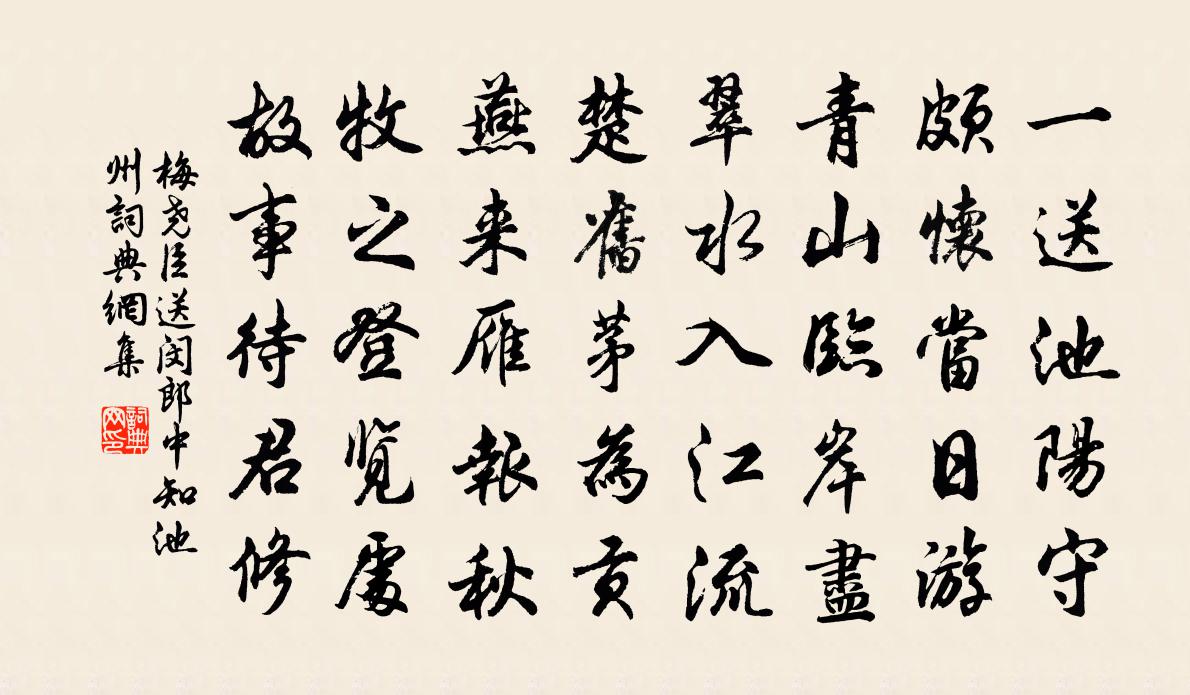 一送池陽守
頗懷當日游
青山臨岸盡
翠水入江流
楚舊茅為貢
燕来雁報秋
牧之登覽處
故事待君修
梅堯臣送閔郎中知池
州詞典網集
詞典網印